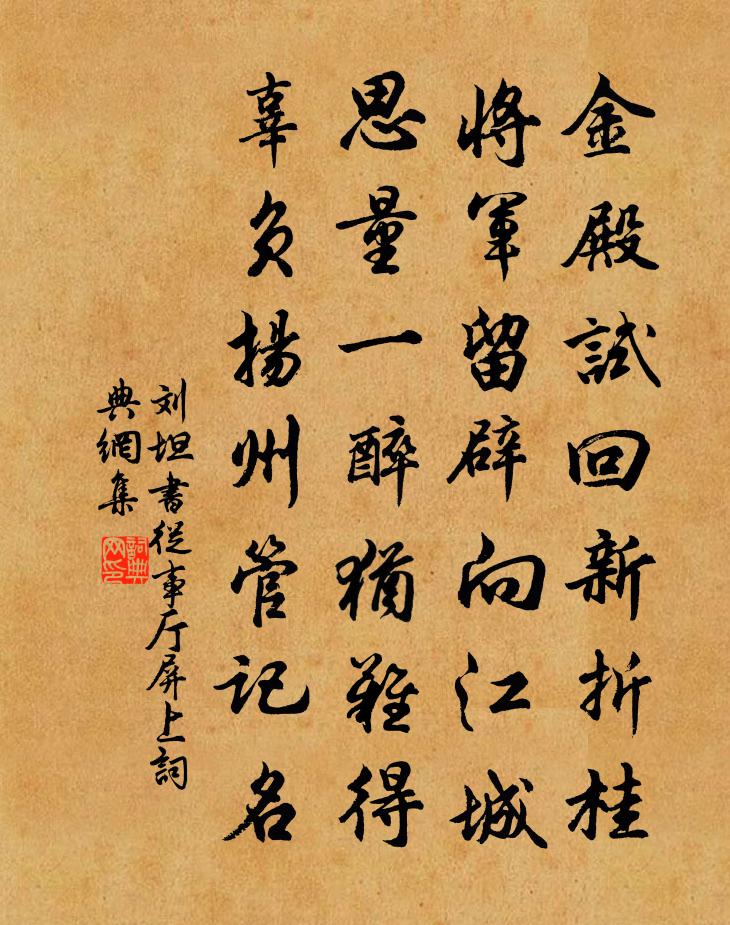 金殿試回新折桂
將軍留辟向江城
思量一醉猶難得
辜負揚州管記名
刘坦書從事厅屏上詞
典網集
詞典網印